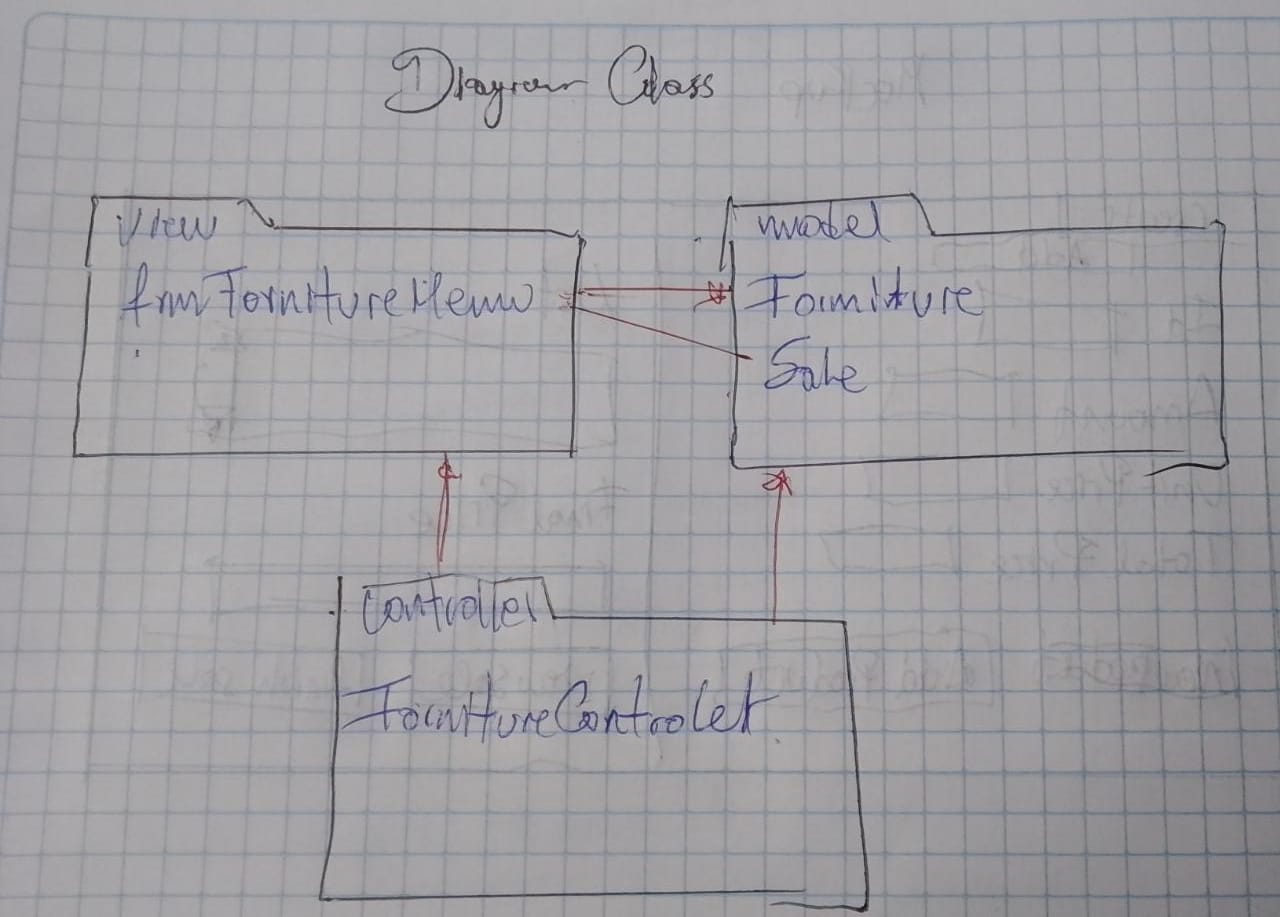 Diagram Class
View
frmFornitureMenu
model
Fourniture
Sale
Controller
FournitureControler